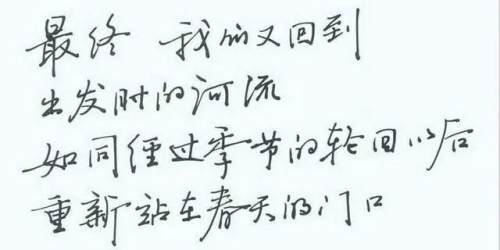 最终 我们又回到
出发时的河流
如同经过季节的轮回以后
重新站在春天的门口